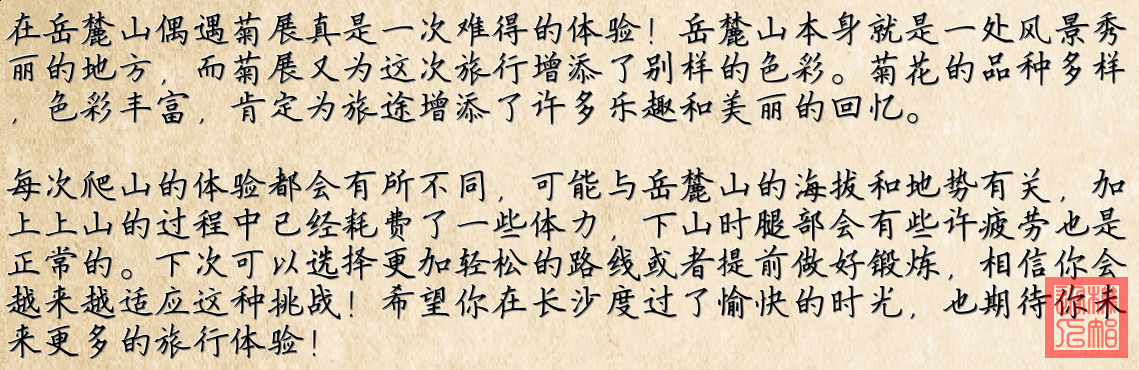 在岳麓山偶遇菊展真是一次难得的体验！岳麓山本身就是一处风景秀
丽的地方，而菊展又为这次旅行增添了别样的色彩。菊花的品种多样
，色彩丰富，肯定为旅途增添了许多乐趣和美丽的回忆。
每次爬山的体验都会有所不同，可能与岳麓山的海拔和地势有关，加
上上山的过程中已经耗费了一些体力，下山时腿部会有些许疲劳也是
正常的。下次可以选择更加轻松的路线或者提前做好锻炼，相信你会
越来越适应这种挑战！希望你在长沙度过了愉快的时光，也期待你未
来更多的旅行体验！